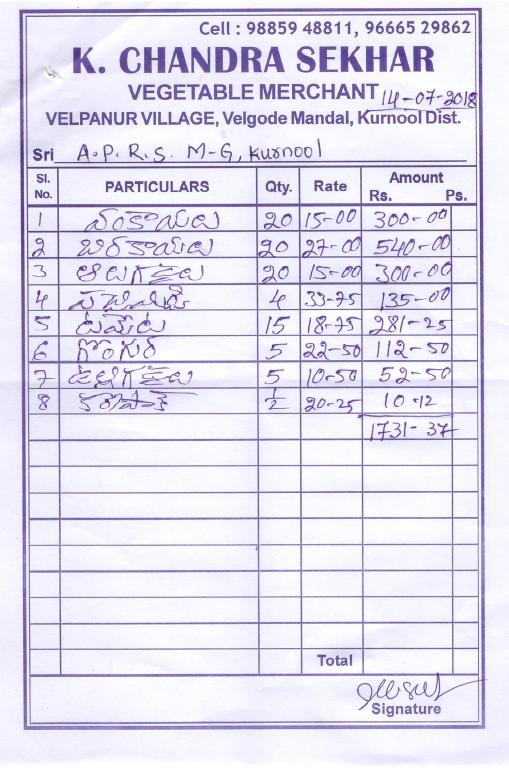 Cell : 98859 48811, 96665 29862
K. CHANDRA SEKHAR
VEGETABLE MERCHANT 14-07-2018
VELPANUR VILLAGE, Velgode Mandal, Kurnool Dist.
Sri A.P.R.S. M-G, Kurnool
Sl. No. PARTICULARS Qty. Rate Amount Rs. Ps.
1 వంకాయలు 20 15-00 300-00
2 బీరకాయలు 20 27-00 540-00
3 ఆలుగడ్డలు 20 15-00 300-00
4 4 33-75 135-00
5 టమోట 15 18-75 281-25
6 గోంగూర 5 22-50 112-50
7 ఉల్లిగడ్డలు 5 10-50 52-50
8 కరివేపాకు ½ 20-25 10-12
1731-37
Total
Signature